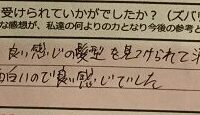 受けられていかがでしたか？（ズバリ
な感想が、私達の何よりの力となり今後の参考と
良い感じの髪型を見つけられて
白いので良い感じでした